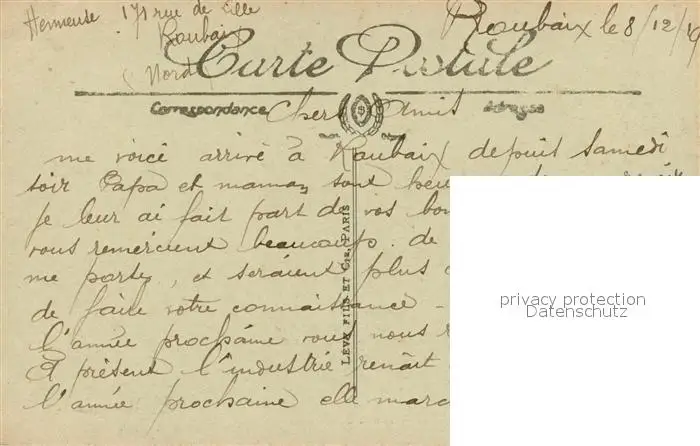 Hermeuse 171 rue de Lille
Roubaix
(Nord)
Roubaix le 8/12/19
Carte Postale
Correspondance
Adresse
Chers Amis
me voicé arrivé à Roubaix depuit Samedi
soir Papa et maman sont heu
je leur ai fait part de vos bon
vous remercient beaucoup. de
me portez, et seraient plus
de faire votre connaissance -
l'année prochaine vous nous
A présent l'industrie renait
l'année prochaine elle marc
LEVY FILS ET Cie, PARIS
privacy protection
Datenschutz